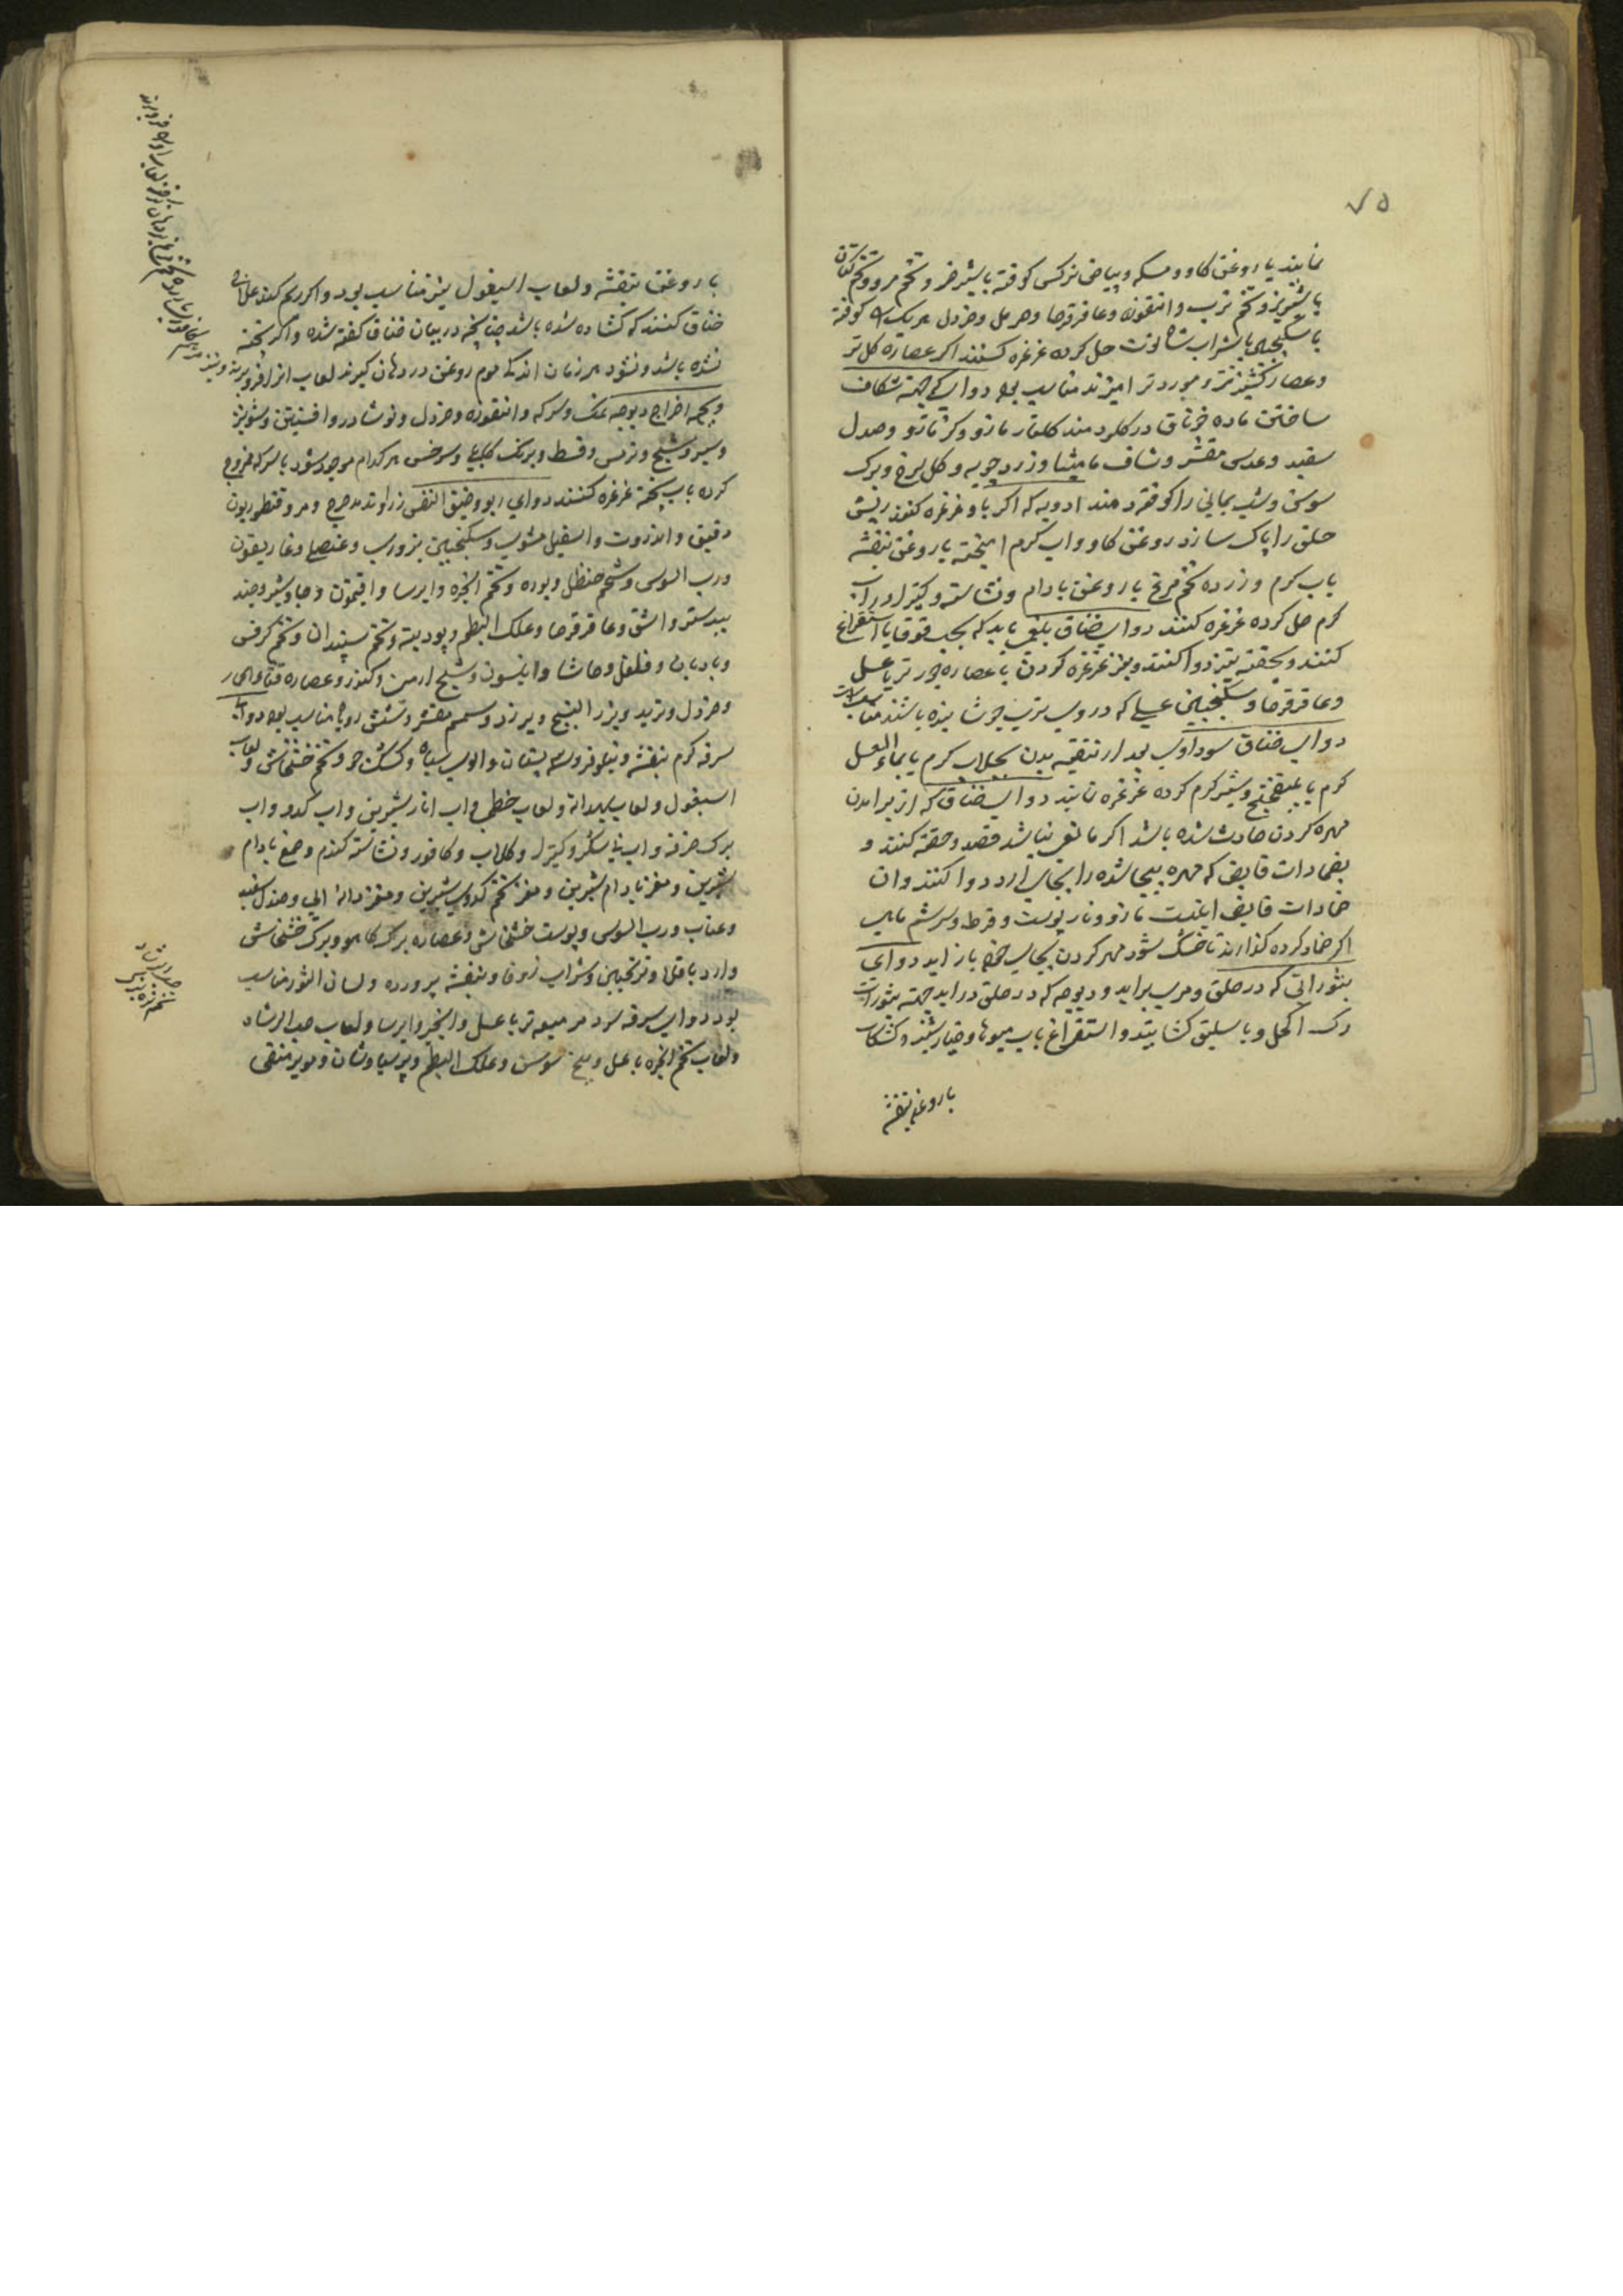 ۷۵
نمایند یا روغن کاو و مسکه و پیاض نرکس کوفته با شیر خر و تخم مرو و تخم کتان
یا شونیز و تخم ترب و انتقون وعاقرقرحا و حرمل و خردل هر یک را کوفته
با سکنجبین یا بشراب شاهتوت حل کرده غرغره کنند اکر عصاره کل تر
و عصاره کشنیز تر و مورد تر امیزند مناسب بود دوای جهته شکاف
ساختن ماده خوناق در کلو دمند کلنار مازو و کزمازو و صندل
سفید و عدس مقشر و شاف مامیثا و زرد چوبه و کل سرخ و برک
سوسن و شب یمانی را کوفته دمند ادویه که اکر باو غرغره کنند ریش
حلق را پاک سازد روغن کاو و اب کرم امیخته یا روغن بنفشه
باب کرم و زرده تخم مرغ با روغن بادام و نشاسته و کتیرا در اب
کرم حل کرده غرغره کنند دوای خناق بلغمی باید که بحب قوقایا استفراغ
کنند و بحقنه تیز دوا کنند و نیز غرغره کردن با عصاره جوز تر یا عسل
وعاقرقرحا و سکنجبین عسلی که در وی ترب جوشانیده باشند مناسب است
دوای خناق سوداوی بعد از تنقیه بدن بجلاب کرم یا بماء العسل
کرم یا بمیفختج و شیر کرم کرده غرغره نمایند دوای خناق که از بر امدن
مهره کردن حادث شده باشد اکر مانعی نباشد فصد و حقنه کنند و
بضمادات قابض که مهره بیجا شده را بجای ارد دوا کنند وان
ضمادات قابض اینست مازو و نار پوست و قرط و سرشم ماهی
اکر ضماد کرده کذارند تا خشک شود مهره کردن بجای خود باز اید دوای
بثوراتی که در حلق و مری براید و دیوچه که در حلق در اید جهته بثورات
رک اکحل و باسلیق کشایند و استفراغ باب میوها و خیارشنبر و کشکاب
با روغن بنفشه
با روغن بنفشه و لعاب اسپغول نیز مناسب بود و اکر ریم کند علاج
خناق کنند که کشاده شده باشد چنانچه در بیان خناق کفته شده و اکر پخته
نشده باشد و نشود هر زمان اندکی موم روغن در دهان کیرند لعاب انرا فرو برند و نیز
و بجهه اخراج دیوچه نمک و سرکه و انتقوزه و خردل و نوشادر و افسنتین و شونیز
و سیر و شیح و ترمس و قسط و برنک کابلی و سرخس هر کدام موجود شود با سرکه ممزوج
کرده باب پخته غرغره کنند دوای ربو و ضیق النفس زراوند مدحرج و مر و قنطوریون
دقیق و انزروت و اسقیل مشوی و سکنجبین بزوری و عنصلی و غاریقون
و رب السوس و شحم حنظل و بوره و تخم انجره و ایرسا و افیتمون و جاوشیر و جند
بیدستر و اشق و عاقرقرحا و علک البطم و پودینه و تخم سپندان و تخم کرفس
و بادیان و فلفل و حاشا و انیسون و شیح ارمن و کندز و عصاره قثاء الحمار
و خردل و تربد و بزر البنج و بیرزد و سمسم مقشر و شش روباه مناسب بود دوای
سرفه کرم بنفشه و نیلوفر و سپستان و الوی سیاه و کشک جو و تخم خشخاش و لعاب
اسپغول و لعاب بهدانه و لعاب خطمی و اب انار شیرین و اب کدو و اب
برک خرفه و اب نیشکر و کتیرا و کلاب و کافور و نشاسته کندم و صمغ بادام
شیرین و مغز بادام شیرین و مغز تخم کدوی شیرین و مغز دانه ابی و صندل سفید
و عناب و رب السوس و پوست خشخاش و عصاره برک کاهو و برک خشخاش
و ارد باقلا و ترنجبین و شراب زوفا و بنفشه پرورده و لسان الثور مناسب
بود دوای سرفه سرد مر میعه تر با عسل و انجیر و ایرسا و لعاب حب الرشاد
و لعاب تخم انجره با عسل و بیخ سوسن و علک البطم و پرسیاوشان و مویز منقی